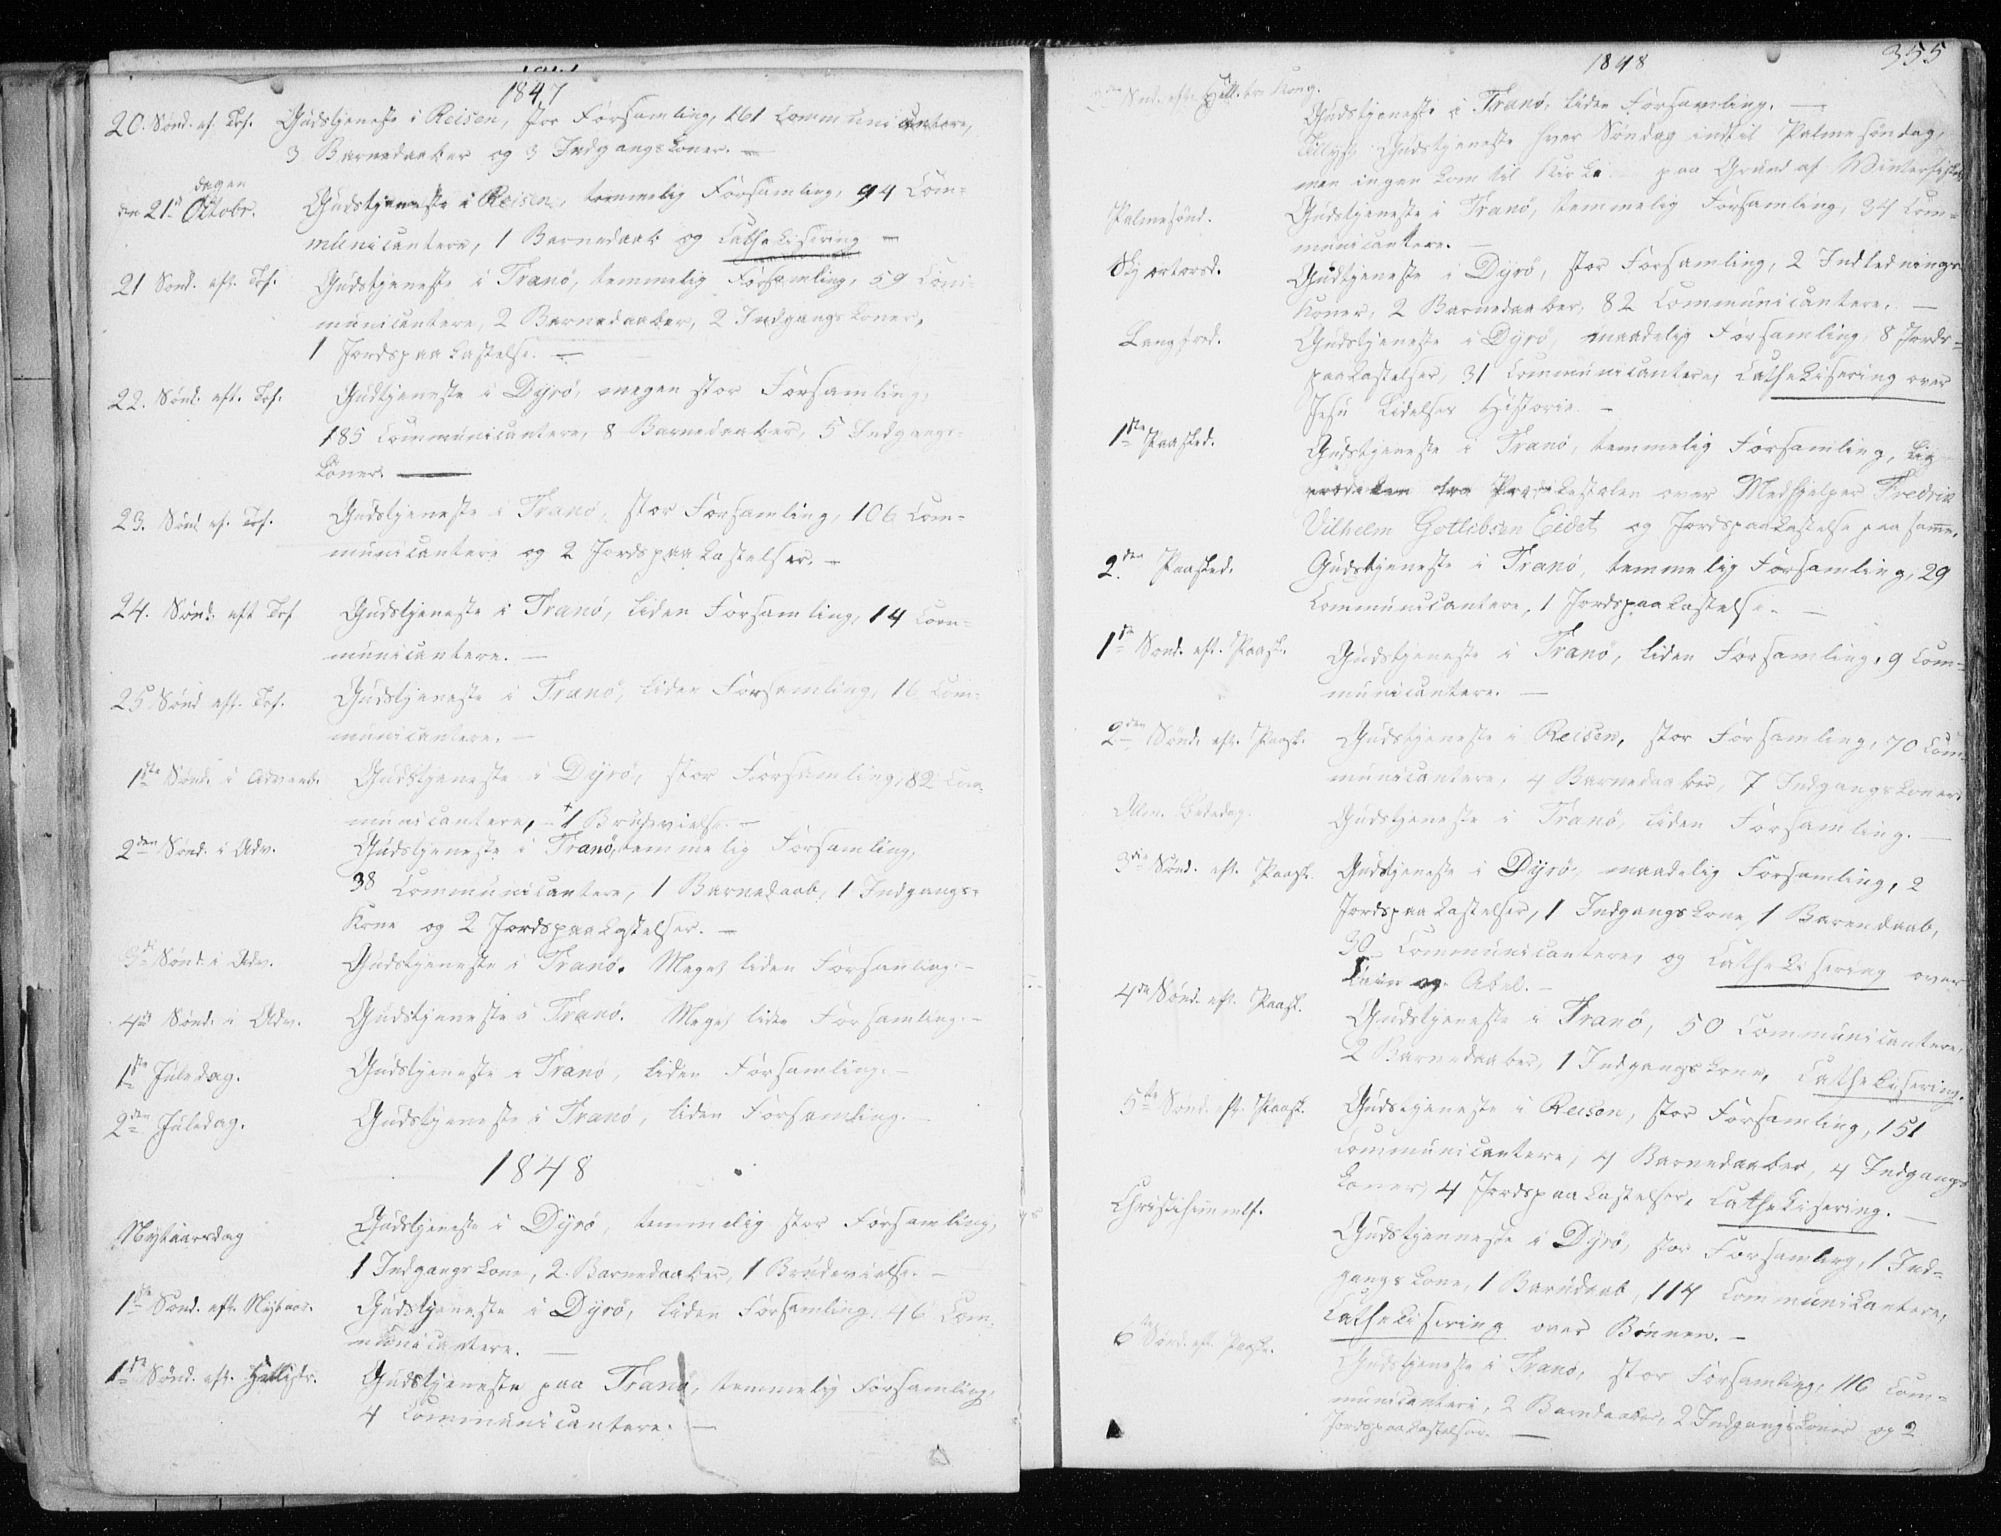 1847
20. Sönd. ef. Trf. Gudstjeneste i Reisen, stor Forsamling, 161 Communicantere,
3 Barnedaaber og 3 Indgangskoner. —
dagen
den 21de Octobr. Gudstjeneste i Reisen, temmelig Forsamling, 94 Com-
municantere, 1 Barnedaab og Cathekisering —
21 Sond. eft. Trf. Gudstjeneste i Tranö, temmelig Forsamling, 59 Com-
municantere, 2 Barnedaaber, 2 Indgangskoner,
1 Jordspaakastelse. —
22. Sönd. eft. Trf. Gudtjeneste i Dyrö, megen stor Forsamling,
185 Communicantere, 8 Barnedaaber, 5 Indgangs-
koner. —
23. Sönd ef. Trf. Gudstjeneste i Tranö, stor Forsamling, 106 Com-
municantere og 2 Jordspaakastelser. —
24. Sönd. eft Trf Gudstjeneste i Tranö, liden Forsamling, 14 Com-
municantere. —
25 Sönd eft. Trf. Gudstjeneste i Tranö, liden Forsamling, 16 Com-
municantere. —
1ste Sönd. i Advent. Gudstjeneste i Dyrö, stor Forsamling, 82 Com-
municantere, 1 Brudevielse. —
2den Sönd. i Adv. Gudstjeneste i Tranö, temmelig Forsamling,
38 Communicantere, 1 Barnedaab, 1 Indgangs-
kone og 2 Jordspaakastelser. —
3de Sönd. i Adv. Gudstjeneste i Tranö. Meget liden Forsamling. —
4de Sönd. i Adv. Gudstjeneste i Tranö. Meget liden Forsamling. —
1ste Juledag. Gudstjeneste i Tranö, liden Forsamling. —
2den Juledag. Gudstjeneste i Tranö, liden Forsamling. —
1848
Nytaarsdag Gudstjeneste i Dyrö, temmelig stor Forsamling,
1 Indgangskone, 2 Barnedaaber, 1 Brudevielse. —
1ste Sönd. eft. Nytaar. Gudstjeneste i Dyrö, liden Forsamling, 46 Com-
municantere. —
1ste Sönd. eft. Hellig tr. Gudstjeneste paa Tranö, temmelig Forsamling,
4 Communicantere. —
1848 355
Sönd. eft. Hell. tre Kong. Gudstjeneste i Tranö, liden Forsamling. —
Tillyst Gudstjeneste hver Söndag indtil Palmesöndag,
men ingen kom til Kirke paa Grund af Winterfisket
Palmesönd. Gudstjeneste i Tranö, temmelig Forsamling, 34 Com-
municantere. —
Skjærtorsd. Gudtjeneste i Dyrö, stor Forsamling, 2 Indlednings-
koner, 2 Barnedaaber, 82 Communicantere. —
Langfred. Gudstjeneste i Dyrö, maadelig Forsamling, 8 Jords-
paakastelser, 31 Communicantere, Cathekisering over
Jesu Lidelses Historie. —
1ste Paasked. Gudstjeneste i Tranö, temmelig Forsamling, Lig-
prædiken fra Prædikestolen over Medhjelper Fredrik
Vilhelm Gotlibsen Eidet og Jordspaakastelse paa samme.
2den Paasked. Gudstjeneste i Tranö, temmelig Forsamling, 29
Communicantere, 1 Jordspaakastelse. —
1ste Sönd. eft. Paask. Gudstjeneste i Tranö, liden Forsamling, 9 Com-
municantere. —
2den Sönd. eft. Paask. Gudstjeneste i Reisen, stor Forsamling, 70 Com-
municantere, 4 Barnedaaber, 7 Indgangskoner.
Alm. Bededag. Gudstjeneste i Tranö, liden Forsamling. —
3die Sönd. eft. Paask. Gudstjeneste i Dyrö, maadelig Forsamling, 2
Jordspaakastelser, 1 Indgangskone, 1 Barendaab,
30 Communicantere, og Cathekisering over
Cain og Abel. —
4de Sönd. eft. Paask. Gudstjeneste i Tranö, 50 Communicantere,
2 Barnedaaber, 1 Indgangskone, Cathekisering.
5te Sönd. ft. Paask. Gudstjeneste i Reisen, stor Forsamling, 151
Communicantere, 4 Barnedaaber, 4 Indgangs
koner, 4 Jordspaakastelser, Cathekisering. —
Christihimmelf. Gudstjenneste i Dyrö, stor Forsamling, 1 Ind-
gangskone, 1 Barndaab, 114 Communikantere,
Cathekisering over Bönnen. —
6te Sönd. eft. Paask. Gudstjeneste i Tranö, stor Forsamling, 116 Com-
municanteri, 2 Barndaaber, 2 Indgangskoner og 2
Jordspaakastelser. —